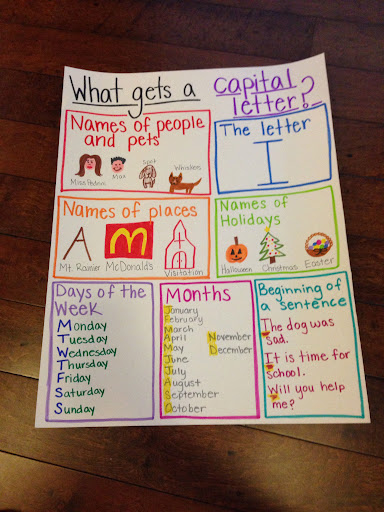 What gets a capital
letter?
Names of people
and pets
Max
Spot
Whiskers
The letter
I
Names of places
M
Mt. Rainier
McDonald's
Visitation
Names of
Holidays
Halloween
Christmas
Easter
Days of the
Week
Monday
Tuesday
Wednesday
Thursday
Friday
Saturday
Sunday
Months
January
February
March
April
May
June
July
August
September
October
November
December
Beginning of
a sentence
The dog was
sad.
It is time for
school.
Will you help
me?